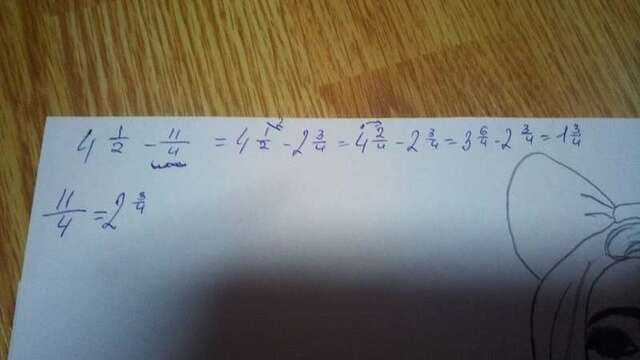 4 1/2 - 11/4 = 4 1/2 - 2 3/4 = 4 2/4 - 2 3/4 = 3 6/4 - 2 3/4 = 1 3/4
11/4 = 2 3/4